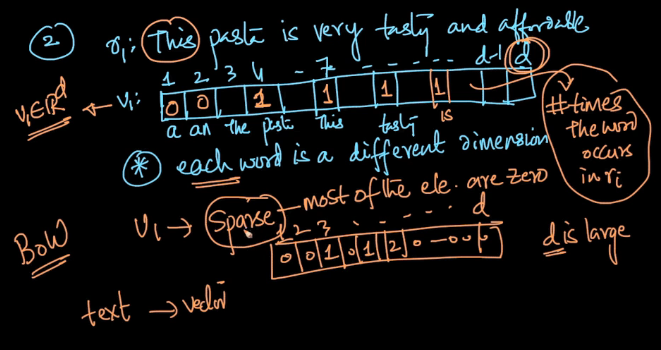 ② r₁: This pasta is very tasty and affordable
1 2 3 4 - 7 - - - - - d-1 d
v₁∈ℝᵈ ← v₁: 0 0 1 1 1 1
a an the pasta this tasty is
# times the word occurs in rᵢ
* each word is a different dimension
BoW v₁ → Sparse - most of the ele. are zero
1 2 3 . - - - . . . d
0 0 1 0 1 2 0 - 0 0 0
d is large
text → vector